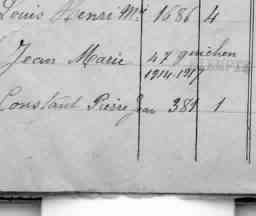 Louis Henri Mie 1686 4
Jean Marie 47 guichen
1914.1917
Constant Pierre Jean 381 1